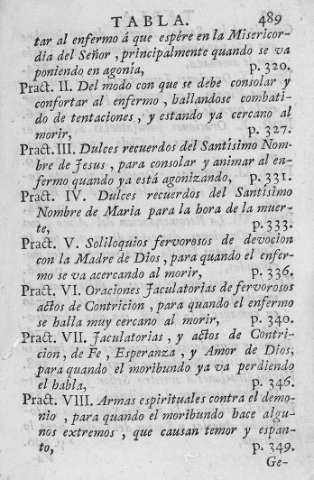 TABLA. 489
tar al enfermo á que espére en la Misericor-
dia del Señor, principalmente quando se va
poniendo en agonía, p. 320.
Pract. II. Del modo con que se debe consolar y
confortar al enfermo, hallandose combati-
do de tentaciones, y estando ya cercano al
morir, p. 327.
Pract. III. Dulces recuerdos del Santísimo Nom-
bre de Jesus, para consolar y animar al en-
fermo quando ya está agonizando, p. 331.
Pract. IV. Dulces recuerdos del Santisimo
Nombre de Maria para la hora de la muer-
te, p. 333.
Pract. V. Soliloquios fervorosos de devocion
con la Madre de Dios, para quando el enfer-
mo se va acercando al morir, p. 336.
Pract. VI. Oraciones Jaculatorias de fervorosos
actos de Contricion, para quando el enfermo
se halla muy cercano al morir, p. 340.
Pract. VII. Jaculatorias, y actos de Contri-
cion, de Fe, Esperanza, y Amor de Dios,
para quando el moribundo ya va perdiendo
el habla, p. 346.
Pract. VIII. Armas espirituales contra el demo-
nio, para quando el moribundo hace algu-
nos extremos, que causan temor y espan-
to, p. 349.
Ge-